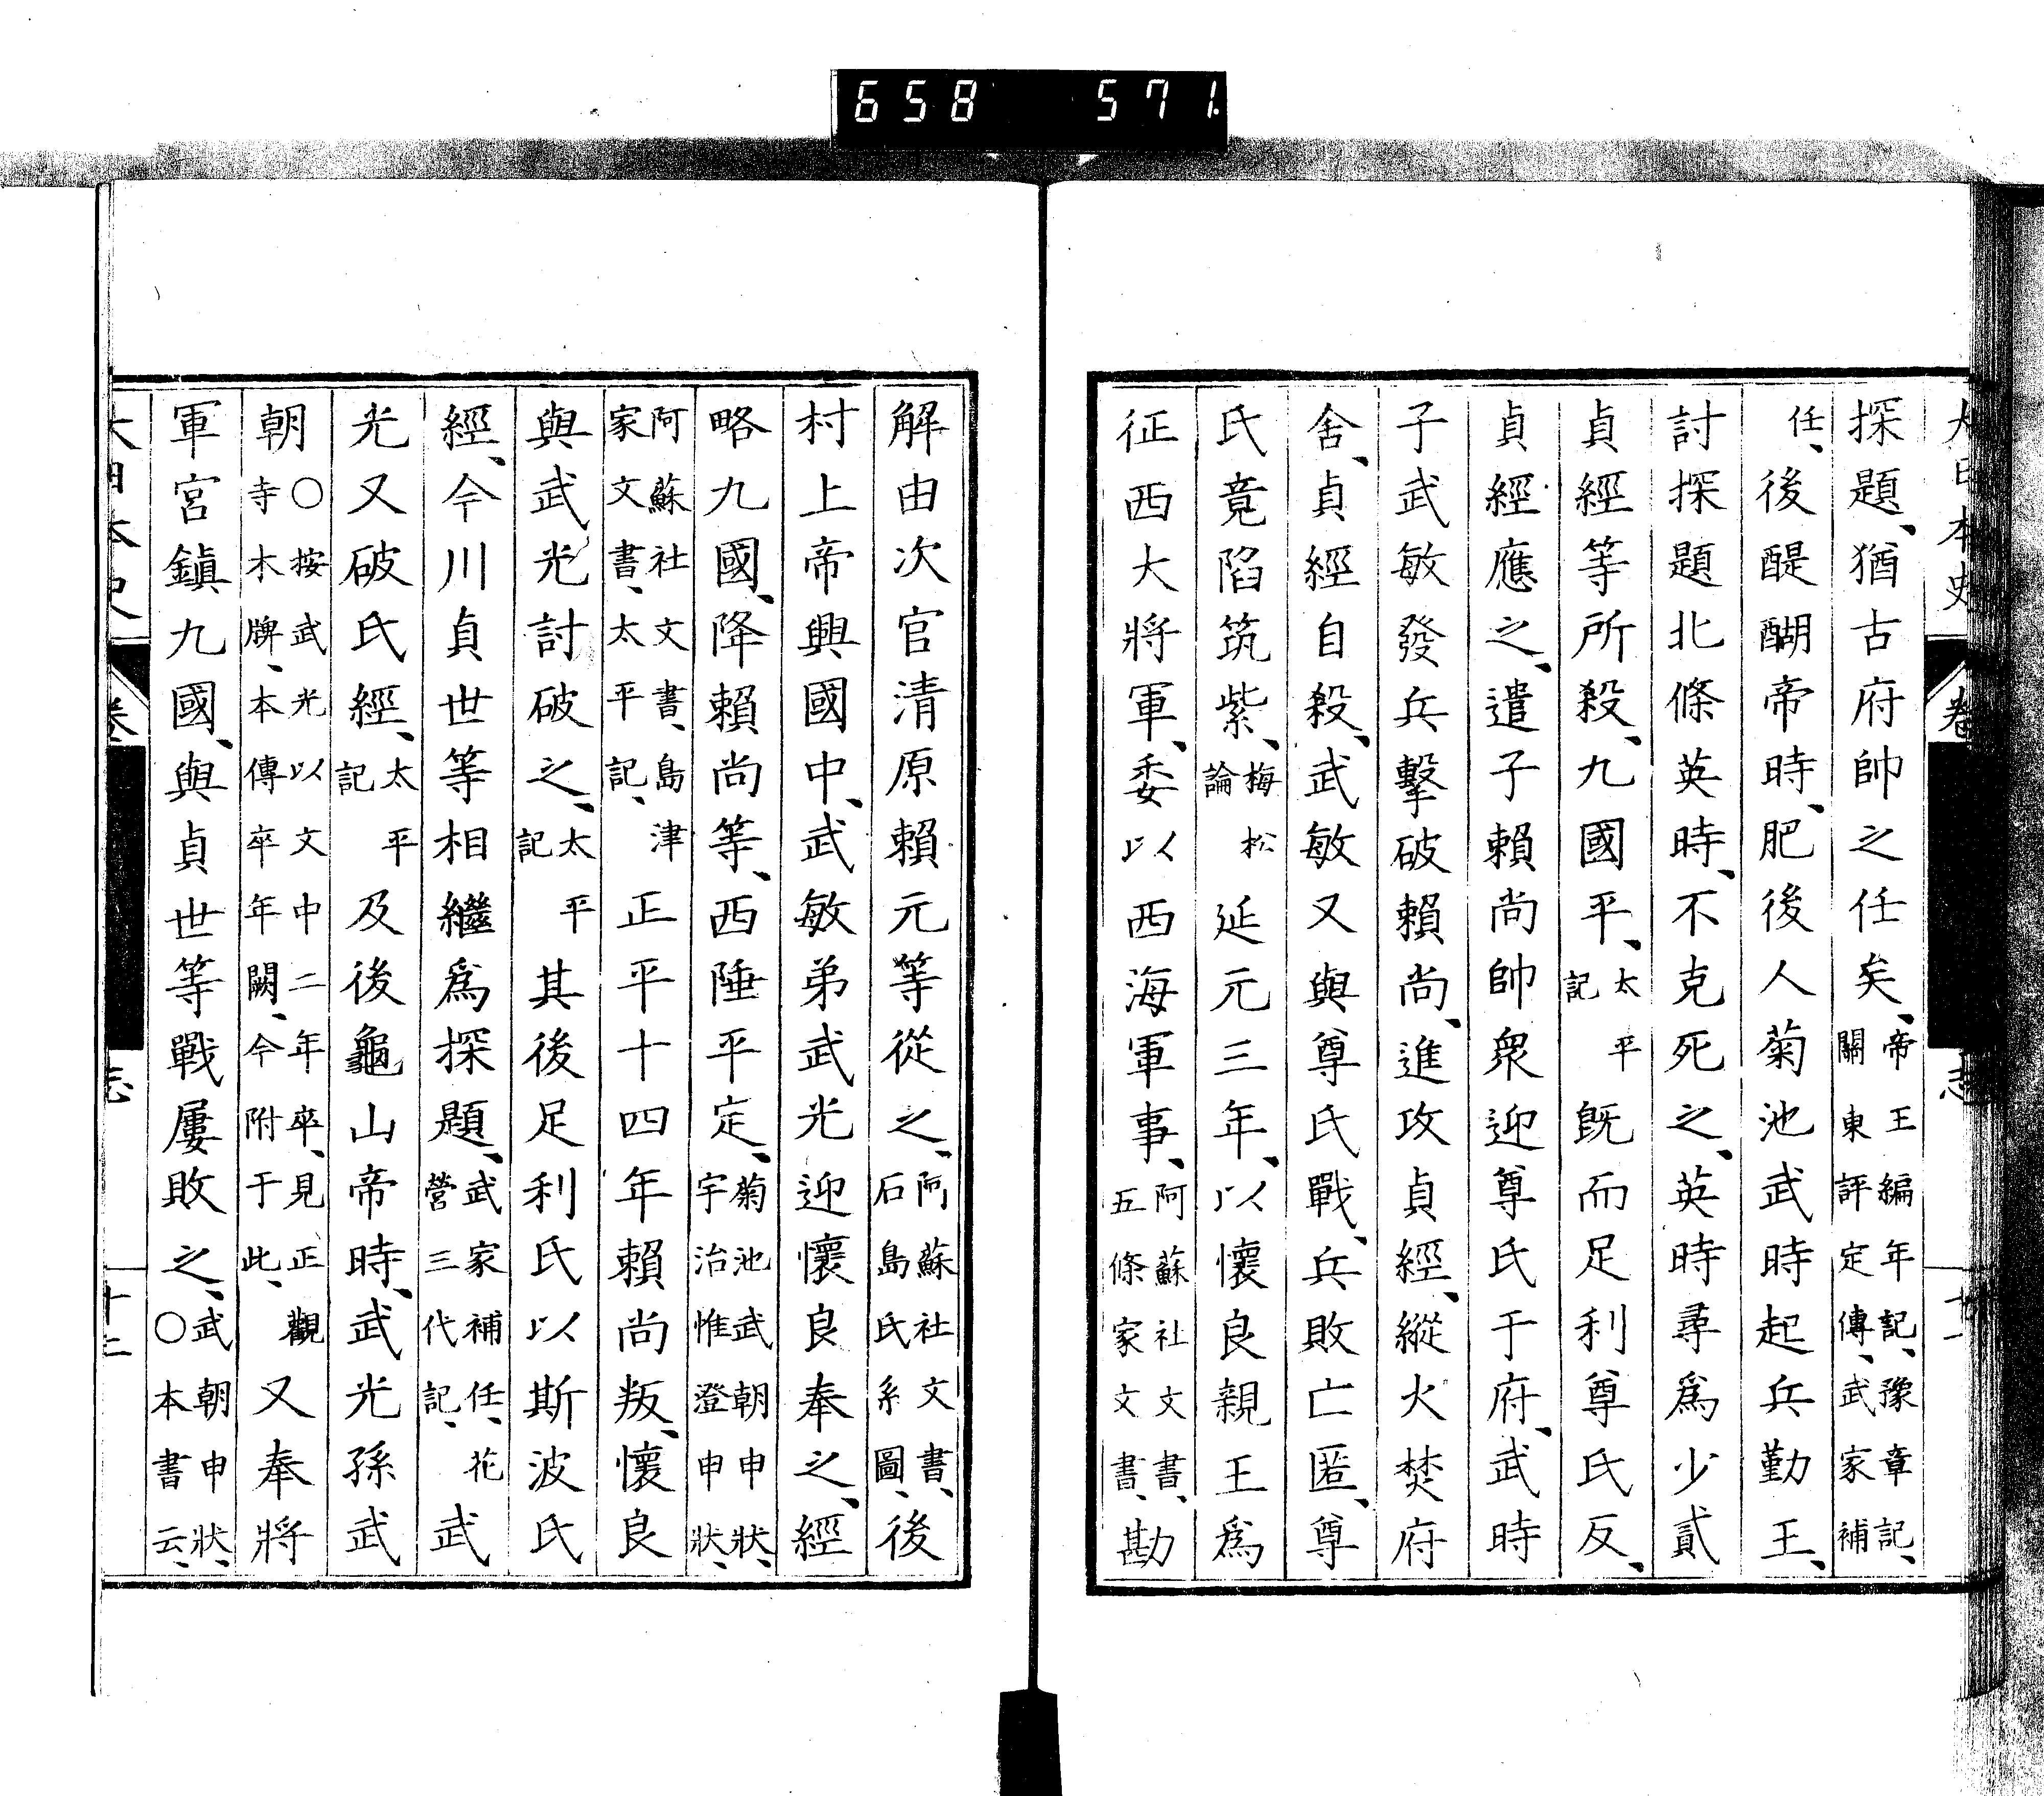 658 571
大日本史 卷 志 十一
探題、猶古府帥之任矣、帝王編年記、豫章記、關東評定傳、武家補
任、後醍醐帝時、肥後人菊池武時起兵勤王、
討探題北條英時、不克死之、英時尋爲少貳
貞經等所殺、九國平、太平記既而足利尊氏反、
貞經應之、遣子賴尚帥衆迎尊氏于府、武時
子武敏發兵擊破賴尚、進攻貞經、縱火焚府
舍、貞經自殺、武敏又與尊氏戰、兵敗亡匿、尊
氏竟陷筑紫、梅松論延元三年、以懷良親王爲
征西大將軍、委以西海軍事、阿蘇社文書、五條家文書、勘
解由次官清原賴元等從之、阿蘇社文書、石島氏系圖、後
村上帝興國中、武敏弟武光迎懷良奉之、經
略九國、降賴尚等、西陲平定、菊池武朝申狀、宇治惟澄申狀、
阿蘇社文書、島津家文書、太平記、正平十四年賴尚叛、懷良
與武光討破之、太平記其後足利氏以斯波氏
經、今川貞世等相繼爲探題、武家補任、花營三代記、武
光又破氏經、太平記及後龜山帝時、武光孫武
朝○按武光以文中二年卒、見正觀寺木牌、本傳卒年闕、今附于此、又奉將
軍宮鎮九國、與貞世等戰屢敗之、武朝申狀、○本書云、
大日本史 卷 志 十二